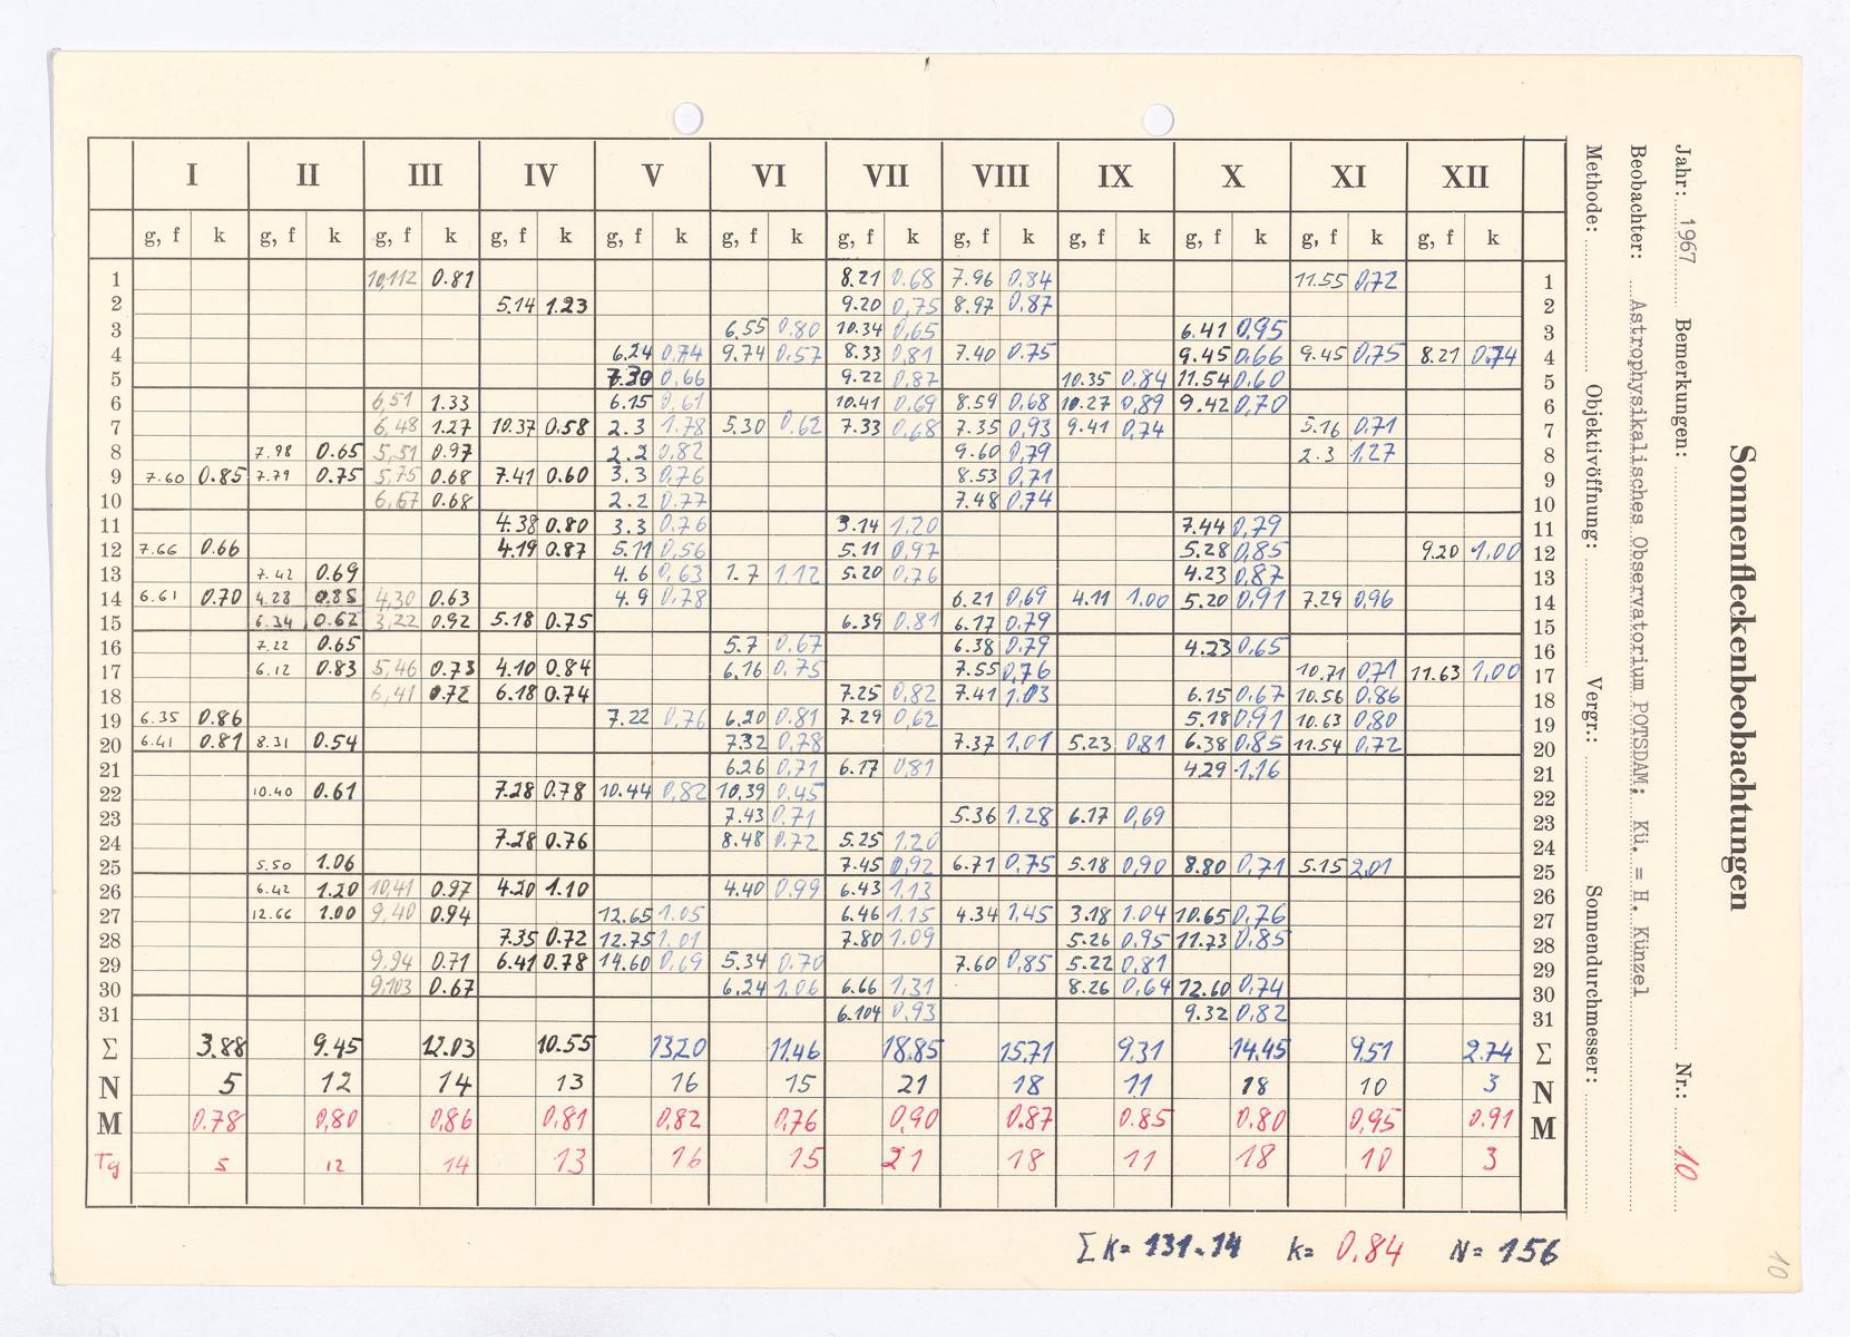 Sonnenfleckenbeobachtungen
Jahr: 1967 Bemerkungen: Nr.: 10
Beobachter: Astrophysikalisches Observatorium POTSDAM; Kü. = H. Künzel
Methode: Objektivöffnung: Vergr.: Sonnendurchmesser:
I II III IV V VI VII VIII IX X XI XII
g, f k g, f k g, f k g, f k g, f k g, f k g, f k g, f k g, f k g, f k g, f k g, f k
1 10,112 0.81 8.21 0.68 7.96 0.84 11.55 0,72 1
2 5.14 1.23 9.20 0,75 8.97 0.87 2
3 6.55 0.80 10.34 0,65 6.41 0,95 3
4 6.24 0,74 9.74 0.57 8.33 0,81 7.40 0.75 9.45 0,66 9.45 0,75 8.21 0.74 4
5 7.30 0,66 9.22 0,87 10.35 0,84 11.54 0,60 5
6 6,51 1.33 6.15 0,61 10.41 0,69 8.59 0,68 10.27 0,89 9.42 0,70 6
7 6,48 1.27 10.37 0.58 2.3 1.78 5.30 0.62 7.33 0,68 7.35 0,93 9.41 0,74 5.16 0.71 7
8 7.98 0.65 5,51 0.97 2.2 0,82 9.60 0,79 2.3 1,27 8
9 7.60 0.85 7.79 0.75 5,75 0.68 7.41 0.60 3.3 0,76 8.53 0,71 9
10 6,67 0.68 2.2 0.77 7.48 0,74 10
11 4.38 0.80 3.3 0.76 3.14 1.20 7.44 0,79 11
12 7.66 0.66 4.19 0.87 5.11 0,56 5.11 0,97 5.28 0,85 9.20 1,00 12
13 7.42 0.69 4.6 0,63 1.7 1.12 5.20 0,76 4.23 0,87 13
14 6.61 0.70 4.28 0.85 4,30 0.63 4.9 0.78 6.21 0,69 4.11 1.00 5.20 0,91 7.29 0,96 14
15 6.34 0.62 3,22 0.92 5.18 0.75 6.39 0.81 6.17 0.79 15
16 7.22 0.65 5.7 0.67 6.38 0,79 4.23 0,65 16
17 6.12 0.83 5,46 0.73 4.10 0.84 6,16 0,75 7.55 0,76 10.71 0,71 11.63 1,00 17
18 6,41 0.72 6.18 0.74 7.25 0,82 7.41 1.03 6.15 0,67 10.56 0,86 18
19 6.35 0.86 7.22 0,76 6.20 0.81 7.29 0,62 5.18 0,91 10.63 0,80 19
20 6.41 0.81 8.31 0.54 7.32 0,78 7.37 1,01 5.23 0,81 6.38 0,85 11.54 0,72 20
21 6.26 0,71 6.17 0,81 4.29 1,16 21
22 10.40 0.61 7.28 0.78 10.44 0,82 10,39 0.45 22
23 7.43 0,71 5.36 1.28 6.17 0,69 23
24 7.28 0.76 8.48 0,72 5.25 1.20 24
25 5.50 1.06 7.45 0,92 6.71 0,75 5.18 0,90 8.80 0,71 5.15 2,01 25
26 6.42 1.20 10,41 0.97 4.20 1.10 4.40 0.99 6.43 1,13 26
27 12.66 1.00 9,40 0.94 12.65 1.05 6.46 1.15 4.34 1,45 3.18 1.04 10.65 0,76 27
28 7.35 0.72 12.75 1.01 7.80 1.09 5.26 0,95 11.73 0,85 28
29 9,94 0.71 6.41 0.78 14.60 0,69 5.34 0.70 7.60 0,85 5.22 0,81 29
30 9,103 0.67 6.24 1.06 6.66 1,31 8.26 0,64 12.60 0,74 30
31 6.104 0,93 9.32 0,82 31
Σ 3.88 9.45 12.03 10.55 13,20 11.46 18.85 15.71 9.31 14.45 9.51 2.74 Σ
N 5 12 14 13 16 15 21 18 11 18 10 3 N
M 0.78 0,80 0,86 0,81 0,82 0,76 0,90 0.87 0.85 0.80 0,95 0.91 M
Tg 5 12 14 13 16 15 21 18 11 18 10 3
Σ K= 131.14 k= 0,84 N= 156
10